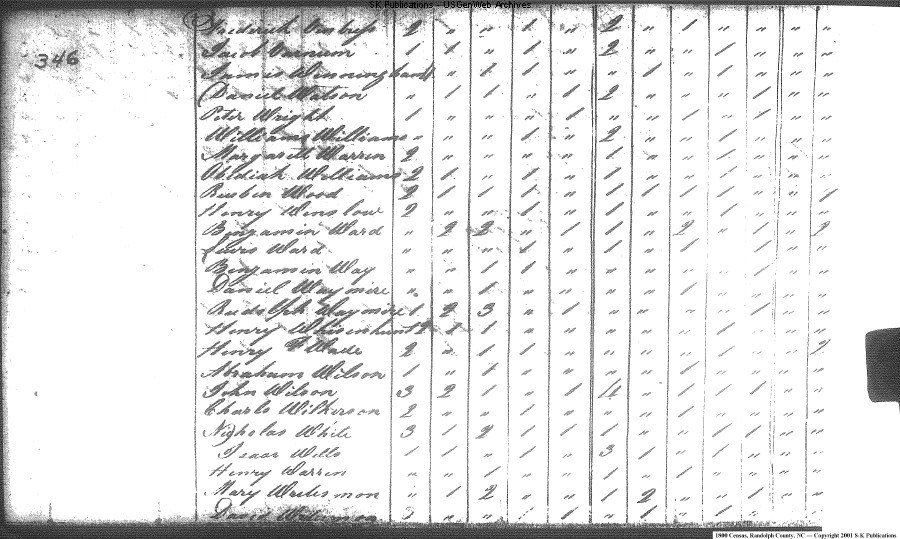 SK Publications - USGenWeb Archives
346
Frederick 2 " " 1 " 2 " 1 " " " "
Jacob 1 1 " 1 " 2 " " 1 " " "
Winningham 1 " 1 1 " " 1 " 1 " " "
Daniel Watson " 1 1 " 1 2 " " " 1 " "
Peter Wright 1 " " " 1 " " 1 " 1 " "
Williams Williams " " " 1 " 2 " " 1 " " "
Margarett Warren 2 " " " " 1 " " 1 " " "
Obediah Williams 2 1 " 1 " 1 " " 1 " " "
Reuben Wood 2 1 1 1 " 1 1 1 1 " " 1
Henry Winslow 2 " " " 1 1 " " 1 " " "
Benjamin Ward " 2 2 " 1 1 " 2 " 1 " 2
Lewis Ward " " " 1 " 1 " 1 " " "
Benjamin Way " " 1 1 " " " " " 1 " "
Daniel Waymire " " 1 " " " " 1 " " " "
Rudolph Waymire 1 2 3 " 1 " " " " 1 " "
Henry Whisenhunt 2 1 1 " " " " " 1 " " "
Henry Wade 2 " 1 1 " " " " 1 " " 2
Abraham Wilson 1 " 1 " " " " 1 " " " "
John Wilson 3 2 1 " 1 4 " 1 1 1 " "
Charls Wilkerson 2 " " 1 " " " 1 " " " "
Nicholas White 3 1 2 1 1 1 " " 1 1 " "
Isaac Wells 1 1 " 1 " 3 1 " 1 " " "
Henry Warren " " 1 " " 1 " 1 " " " "
Mary " 1 2 " " 1 2 " " 1 " "
David
1800 Census, Randolph County, NC — Copyright 2001 S-K Publications